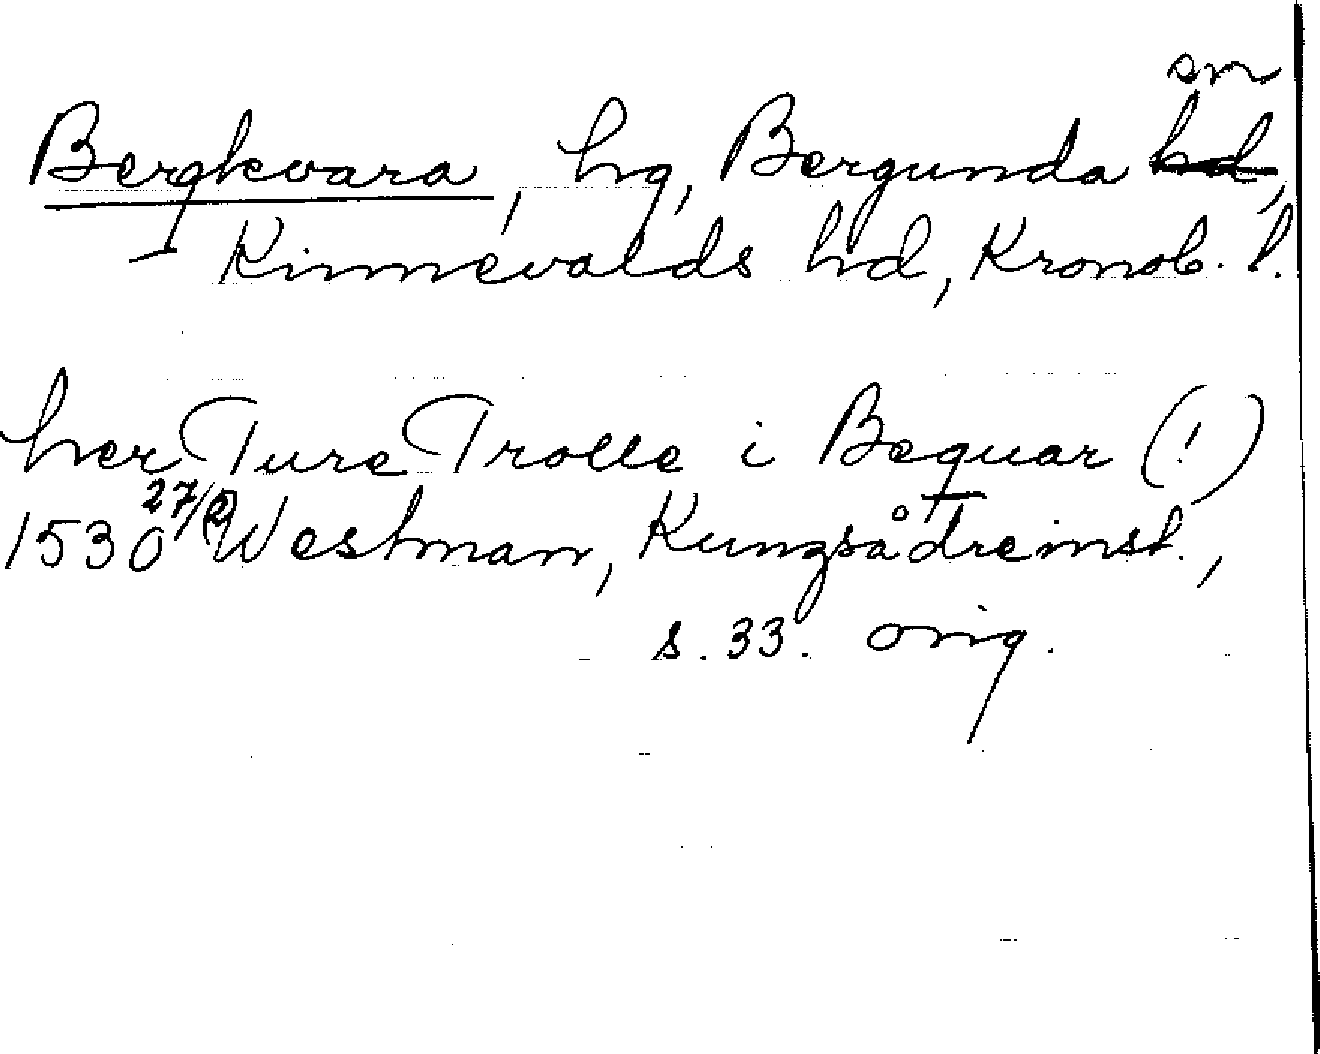 sn
Bergkvara, hg, Bergunda hd,
Kinnevalds hd, Kronob. l.
her Ture Trolle i Bequar (!)
1530 27/2 Westman, Kungsådreinst.,
s. 33. orig.